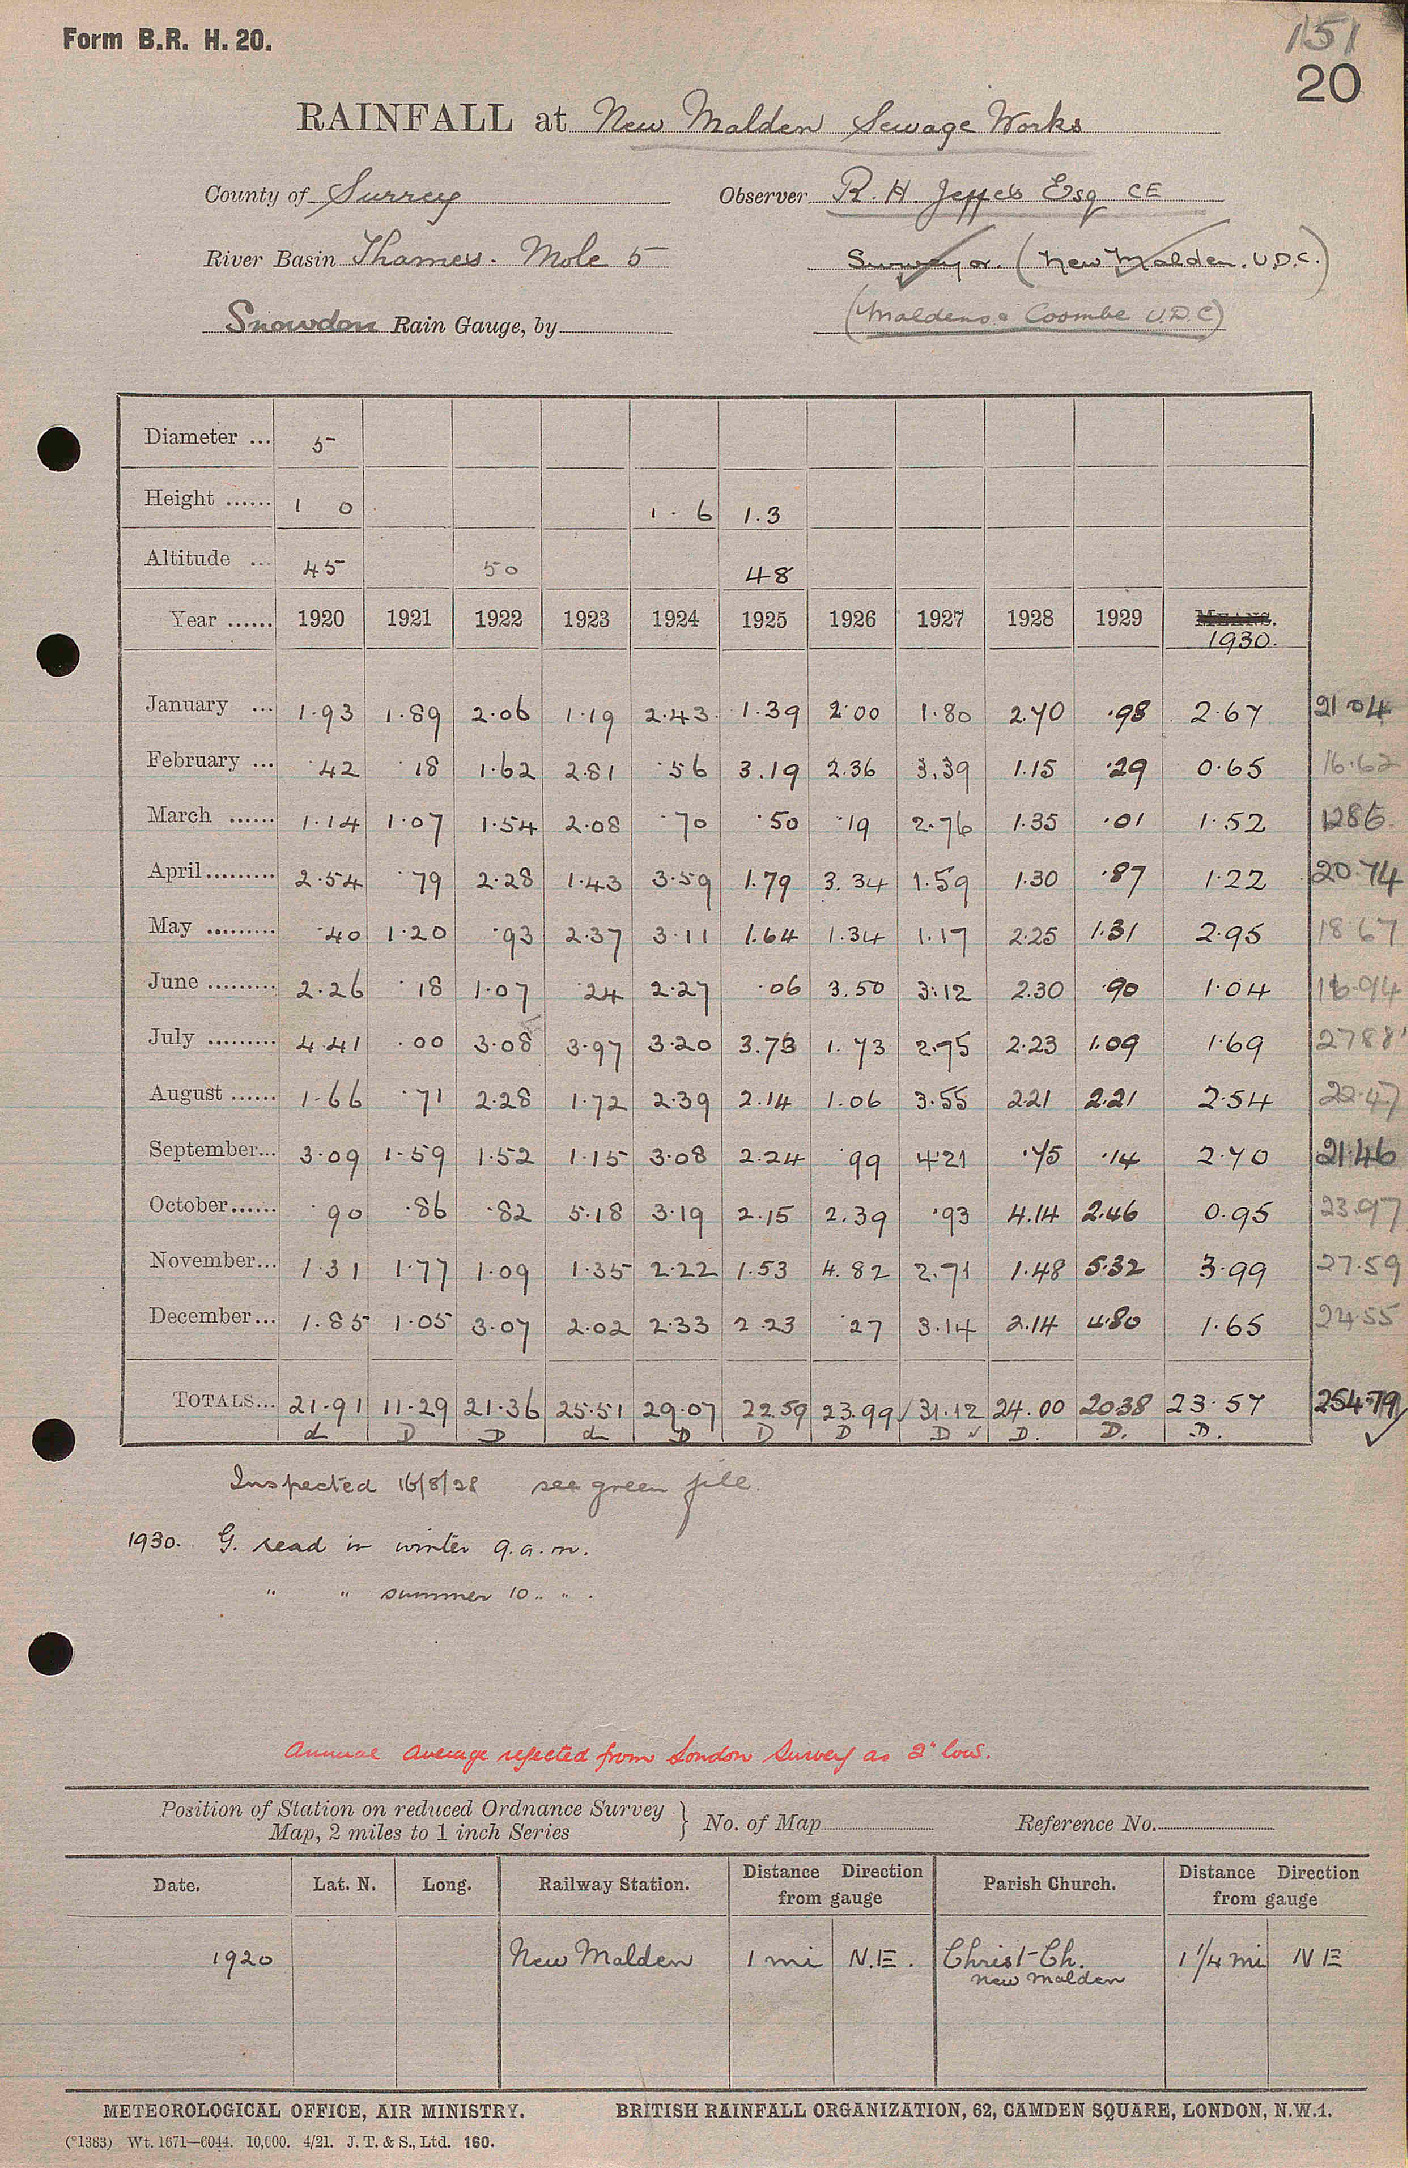 Form B.R. H. 20.
151
20
RAINFALL at New Malden Sewage Works
County of Surrey Observer R. H Jeffes Esq CE
River Basin Thames. Mole 5 Surveyor (New Malden. U.D.C.)
Snowdon Rain Gauge, by (Maldens & Coombe U.D.C)
Diameter ... 5
Height ...... 1 0 1 · 6 1.3
Altitude ... 45 50 48
Year ...... 1920 1921 1922 1923 1924 1925 1926 1927 1928 1929 MEANS.
1930.
January ... 1·93 1·89 2·06 1·19 2·43 1·39 2·00 1·80 2.70 ·98 2·67 21·04
February ... ·42 ·18 1·62 2·81 ·56 3.19 2.36 3.39 1.15 ·29 0·65 16·62
March ...... 1·14 1·07 1·54 2·08 ·70 ·50 ·19 2·76 1·35 ·01 1·52 1286
April ......... 2·54 ·79 2·28 1·43 3·59 1.79 3.34 1·59 1·30 ·87 1·22 20·74
May ......... ·40 1·20 ·93 2·37 3·11 1.64 1·34 1·17 2·25 1·31 2·95 18·67
June ......... 2·26 ·18 1·07 ·24 2·27 ·06 3.50 3·12 2.30 ·90 1·04
July ......... 4·41 ·00 3·08 3·97 3·20 3.73 1.73 2·75 2·23 1·09 1·69 2788
August ...... 1·66 ·71 2·28 1·72 2·39 2·14 1·06 3·55 221 2·21 2·54 22·47
September... 3·09 1·59 1·52 1·15 3·08 2·24 ·99 4·21 ·75 ·14 2·70 21·46
October...... ·90 ·86 ·82 5·18 3·19 2·15 2·39 ·93 4.14 2·46 0·95 23.97
November... 1·31 1·77 1·09 1·35 2·22 1·53 4.82 2·71 1·48 5·32 3·99 27·59
December... 1·85 1·05 3·07 2·02 2·33 2·23 ·27 3·14 2·14 4·80 1·65 24·55
TOTALS... 21·91 11·29 21·36 25·51 29·07 22 59 23·99 31·12 24·00 2038 23·57 254·79
d D D d D D D D D. D. D.
Inspected 16/8/28 see green file
1930. G. read in winter 9.a.m.
" " summer 10 " " .
Annual average rejected from London Survey as 2" low.
Position of Station on reduced Ordnance Survey
Map, 2 miles to 1 inch Series } No. of Map Reference No.
Date. Lat. N. Long. Railway Station. Distance Direction from gauge Parish Church. Distance Direction from gauge
1920 New Malden 1 mi N.E. Christ-Ch. 1 1/4 mi NE
New Malden
METEOROLOGICAL OFFICE, AIR MINISTRY. BRITISH RAINFALL ORGANIZATION, 62, CAMDEN SQUARE, LONDON, N.W.1.
(*1383) Wt. 1671—6044. 10,000. 4/21. J. T. & S., Ltd. 160.